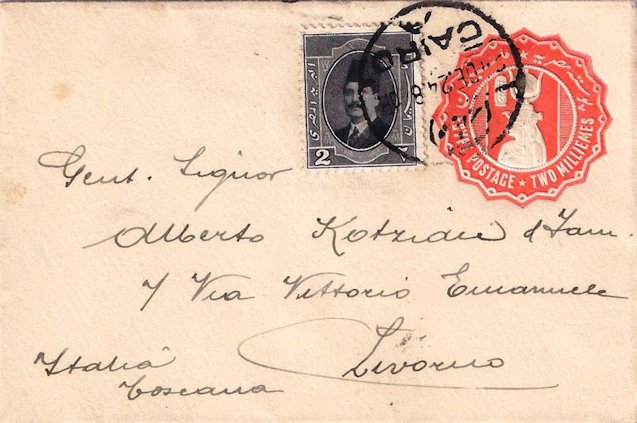 CAIRO
24.8
2
POSTAGE ★ TWO MILLIEMES
Gent. Signor
Alberto Kotzian & Fam.
7 Via Vittorio Emanuele
Livorno
Italia
Toscana